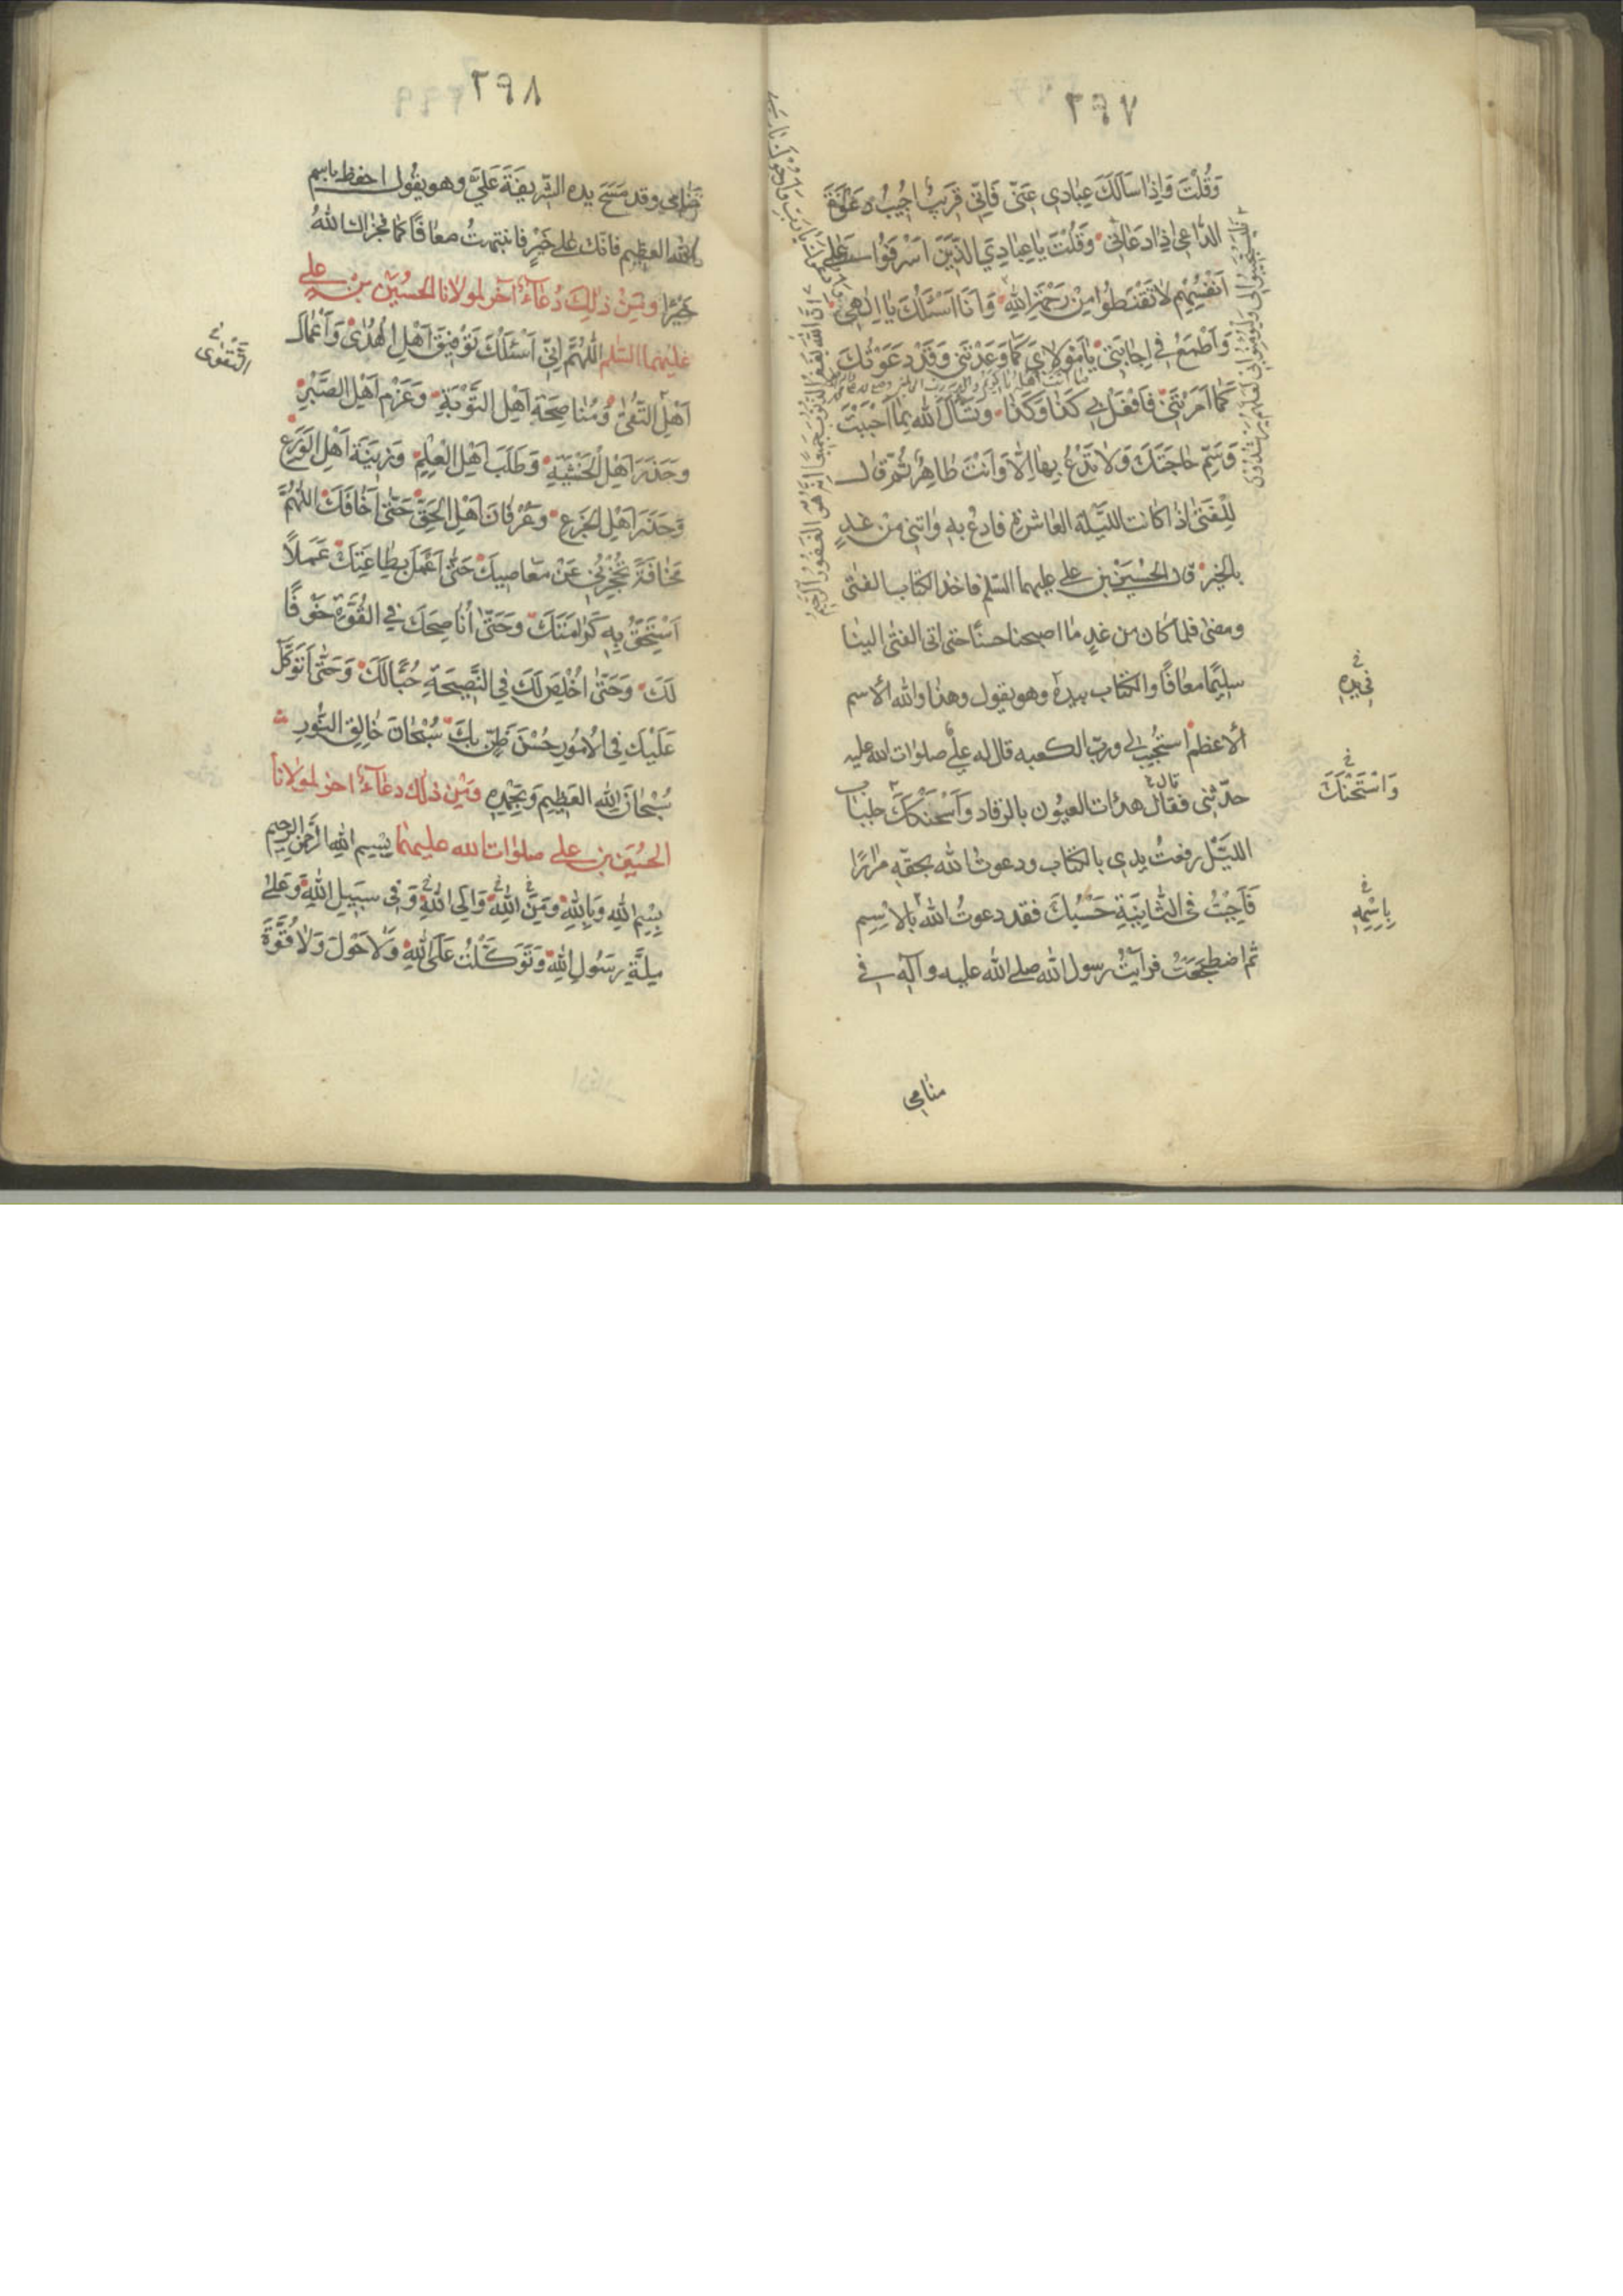 ٢٩٧
وَقُلْتَ وَاِذَا سَاَلَكَ عِبَادِى عَنّى فَاِنّى قَرِيبٌ اُجِيبُ دَعْوَةَ
الدَّاعِى اِذَا دَعَانِى وَقُلْتَ يَا عِبَادِيَ الَّذِينَ اَسْرَفُوا عَلى
اَنْفُسِهِمْ لَا تَقْنَطُوا مِنْ رَحْمَةِ اللهِ وَاَنَا اَسْئَلُكَ يَا اِلهِى
وَاَطْمَعُ فِى اِجَابَتِى يَا مَوْلَايَ كَمَا وَعَدْتَنِى وَقَدْ دَعَوْتُكَ
كَمَا اَمَرْتَنِى فَافْعَلْ بِى كَذَا وَكَذَا وَتَسْاَلُ الله بِمَا اَحْبَبْتَ
وَسَمِّ حَاجَتَكَ وَلَا تَدْعُ بِهَا اِلَّا وَاَنْتَ طَاهِرٌ ثُمَّ قَالَ
لِلْفَتى اِذَا كَانَت اللَّيْلَة العَاشرة فَادعُ بِهِ وَاتِنِى مِنْ غَدٍ
بِالخبر قال الحُسَين بن على عليهما السّلم فاخذ الكتاب الفتى
ومضى فلما كان من غدٍ ما اصبحنا حسنًا حتى اتى الفتى الينا
سليمًا معافًا والكتاب بيده وهو يقول وهذا والله الاسم
الاعظم استُجيب لى وربّ الكعبه قال له علىٌّ صلوات الله عليه
حدّثنى فقال هدئات العيُون بالرقاد وَاسْتَحْنَكَ جلباب
الليْل رفعتُ يدى بالكتاب ودعوتُ الله بحقّه مرارًا
فَاُجِبْتُ فى الثانِيَةِ حَسْبُكَ فقد دعوتُ الله بالاسم
ثم اضطجعَتُ فرايْتُ رسول الله صلى الله عليه وآله فى
منامى
فليستجيبوا لى وليؤمنوا بى لعلهم يرشدون
اِنَّ الله يغفر الذنوب جميعا انه هو الغفور الرحيم
فى يدِهِ
وَاسْتَحْنَكَ
قال
بِاسْمِهِ
٢٩٨
منامى وقد مَسَحَ يده الشّريفَةَ عَلَىَّ وهو يقول احفظ باسم
الله العظيم فانّك على خَيْرٍ فانتبهتُ معافًا كما فجزاك اللهُ
خَيْرًا وَمِنْ ذلِكَ دُعَآءٌ آخر لمولانا الحُسَيْن بنْ على
عليهما السّلم اللّهُمَّ اِنِّى اَسْئَلُكَ تَوْفِيقَ اَهْلِ الْهُدى وَاَعْمَالَ
اَهْلِ التَّقى وَمُنَاصَحَةَ اَهْلِ التَّوْبَةِ وَعَزْمَ اَهْلِ الصَّبْرِ
وَحَذَرَ اَهْلِ الْخَشْيَةِ وَطَلَبَ اَهْلِ الْعِلْمِ وَزِينَةَ اَهْلِ الْوَرَعِ
وَحَذَرَ اَهْلِ الْجَزَعِ وَعِرْفَانَ اَهْلِ الحَقِّ حَتّى اَخَافَكَ اللّهُمَّ
مَخَافَةً تَحْجُزُنِى عَنْ مَعَاصِيكَ حَتّى اَعْمَلَ بِطَاعَتِكَ عَمَلًا
اَسْتَحِقُّ بِهِ كَرَامَتَكَ وَحَتّى اُنَاصِحَكَ فِى التَّوْبَةِ خَوْفًا
لَكَ وَحَتّى اُخْلِصَ لَكَ فِى النَّصِيحَةِ حُبًّا لَكَ وَحَتّى اَتَوَكَّلَ
عَلَيْكَ فِى الْاُمُورِ حُسْنَ ظَنٍّ بِكَ سُبْحَانَ خَالِقِ النُّورِ
سُبْحَانَ اللهِ العَظِيمِ وَبِحَمْدِهِ وَمِنْ ذلك دعَآءٌ اخر لمولانا
الحُسَين بن على صلوات الله عليهما بِسْمِ اللهِ الرَّحْمنِ الرَّحِيمِ
بِسْمِ اللهِ وَبِاللهِ وَمِنَ اللهِ وَاِلَى اللهِ وَفِى سَبِيلِ اللهِ وَعَلى
مِلَّةِ رَسُولِ اللهِ وَتَوَكَّلْتُ عَلَى اللهِ وَلَا حَوْلَ وَلَا قُوَّةَ
التَّقْوى